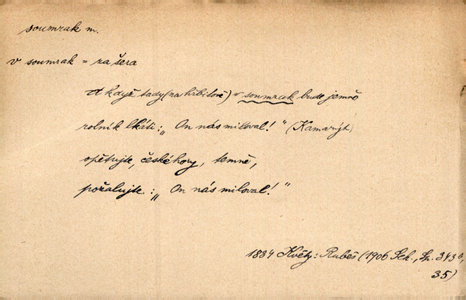 soumrak m.
v soumrak = za šera
A když tady (na hřbitově) v soumrak bude jemně
rolník lkáti: „On nás miloval!“ (Kamarýt)
opětujte, české hory, temně,
požalujte: „On nás miloval!“
1834 Květy: Rubeš (1906 Sch,
35)